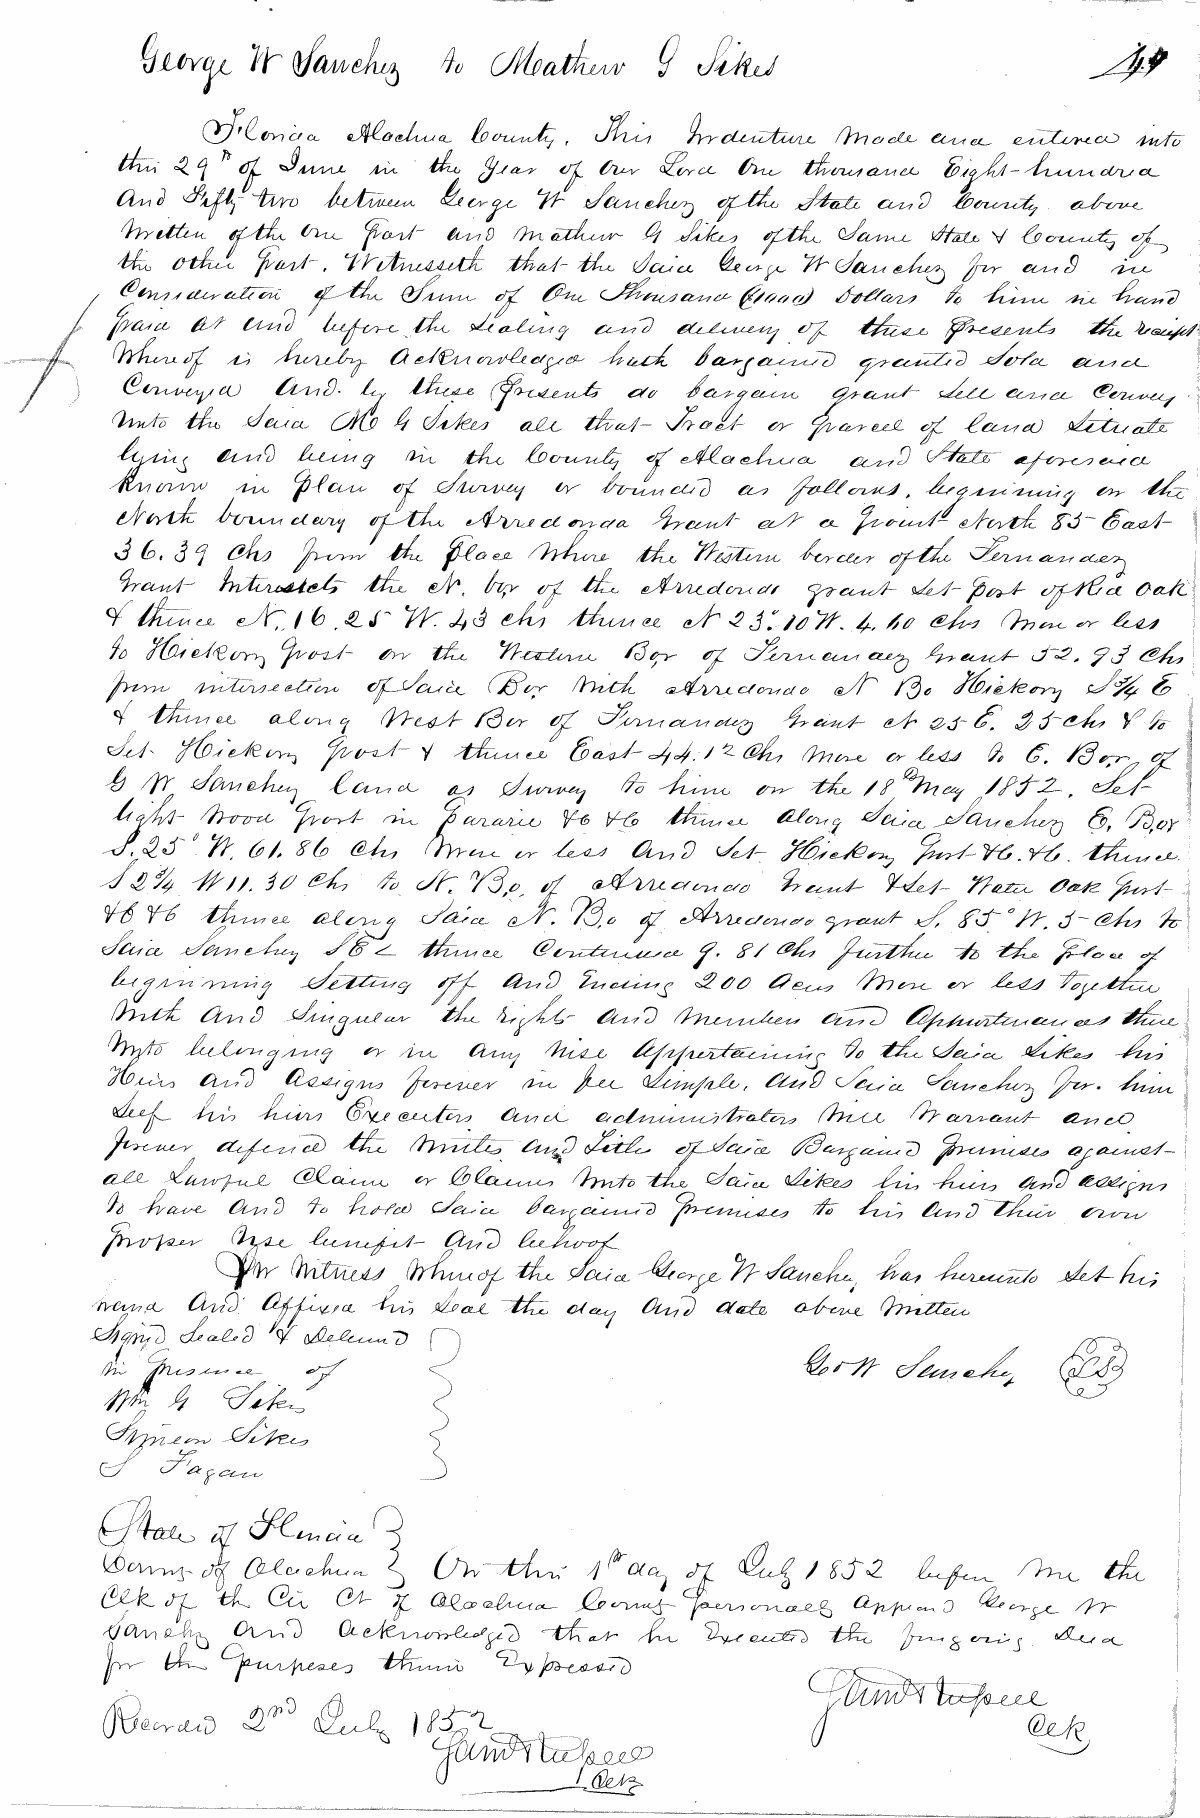 George W Sanchez to Mathew G Sikes
Florida Alachua County. This Indenture Made and entered into
this 29th of June in the Year of Our Lord One thousand Eight-hundred
And Fifty two between George W Sanchez of the State and County above
Written of the One Part and Mathew G Sikes of the Same State & County of
the other Part. Witnesseth that the Said George W Sanchez for and in
Consideration of the Sum of One Thousand (1000) Dollars to him in hand
paid at and before the Sealing and delivery of these Presents the receipt
Whereof is hereby Acknowledged hath bargained granted Sold and
Conveyed And by these Presents do bargain grant Sell and Convey
Unto the Said M G Sikes all that Tract or parcel of land Situate
lying and being in the County of Alachua and State aforesaid
Known in Plan of Survey or bounded as follows, beginning on the
North boundary of the Arredondo Grant at a Point North 85 East
36.39 Chs from the Place Where the Western border of the Fernandez
Grant Intersects the N. bor of the Arredondo grant Set post of Red Oak
& thence N. 16.25 W. 43 chs thence N 23°.10 W. 4.60 Chs More or less
to Hickory Post on the Western Bor of Fernandez Grant 52.93 Chs
from intersection of Said Bor With Arredondo N Bo Hickory S ¾ E
& thence along West Bor of Fernandez Grant N 25 E. 25 chs & to
Set Hickory Post & thence East 44.12 Chs More or less to E. Bor, of
G W Sanchez land as Survey to him on the 18th May 1852. Set
light Wood Post in Pararie &c &c thence along Said Sanchez E. Bor
S. 25° W. 61.86 Chs More or less And Set Hickory Post &c. &c. thence
S 2¾ W 11.30 Chs to N. Bo, of Arredondo Grant & Set Water Oak Post
&c &c thence along Said N. Bo of Arredondo grant S. 85° W. 5 Chs to
Said Sanchez thence Continued 9.81 Chs further to the place of
beginning Setting off And Ending 200 Acres More or less Together
With And Singular the rights And Members and Appurtenances there
Unto belonging or in any Wise Appertaining to the Said Sikes his
Heirs and Assigns forever in fee Simple. And Said Sanchez for him
Self his heirs Executers and administrators Will Warrant and
forever defend the Writes And Title of Said Bargained premises against
all Lawful Claim or Claims Unto the Said Sikes his heirs and assigns
to have And to hold Said bargained Premises to his And their own
proper Use benefit And behoof
In Witness Whereof the Said George W Sanchez has hereunto Set his
hand And Affixed his Seal the day And date above Written
Signd Sealed & Deliverd
in Presence of
Wm G Sikes
Simeon Sikes
S Fagan
Geo W Sanchez LS
State of Florida
County of Alachua On this 1st day of July 1852 before Me the
Clk of th Cir Ct of Alachua County personally Appeard George W
Sanchez And Acknowledged that he Executed the foregoing Deed
for the Purposes therein Expressed
Saml Russell
Clk
Record 2nd July 1852
Saml Russell
Clk